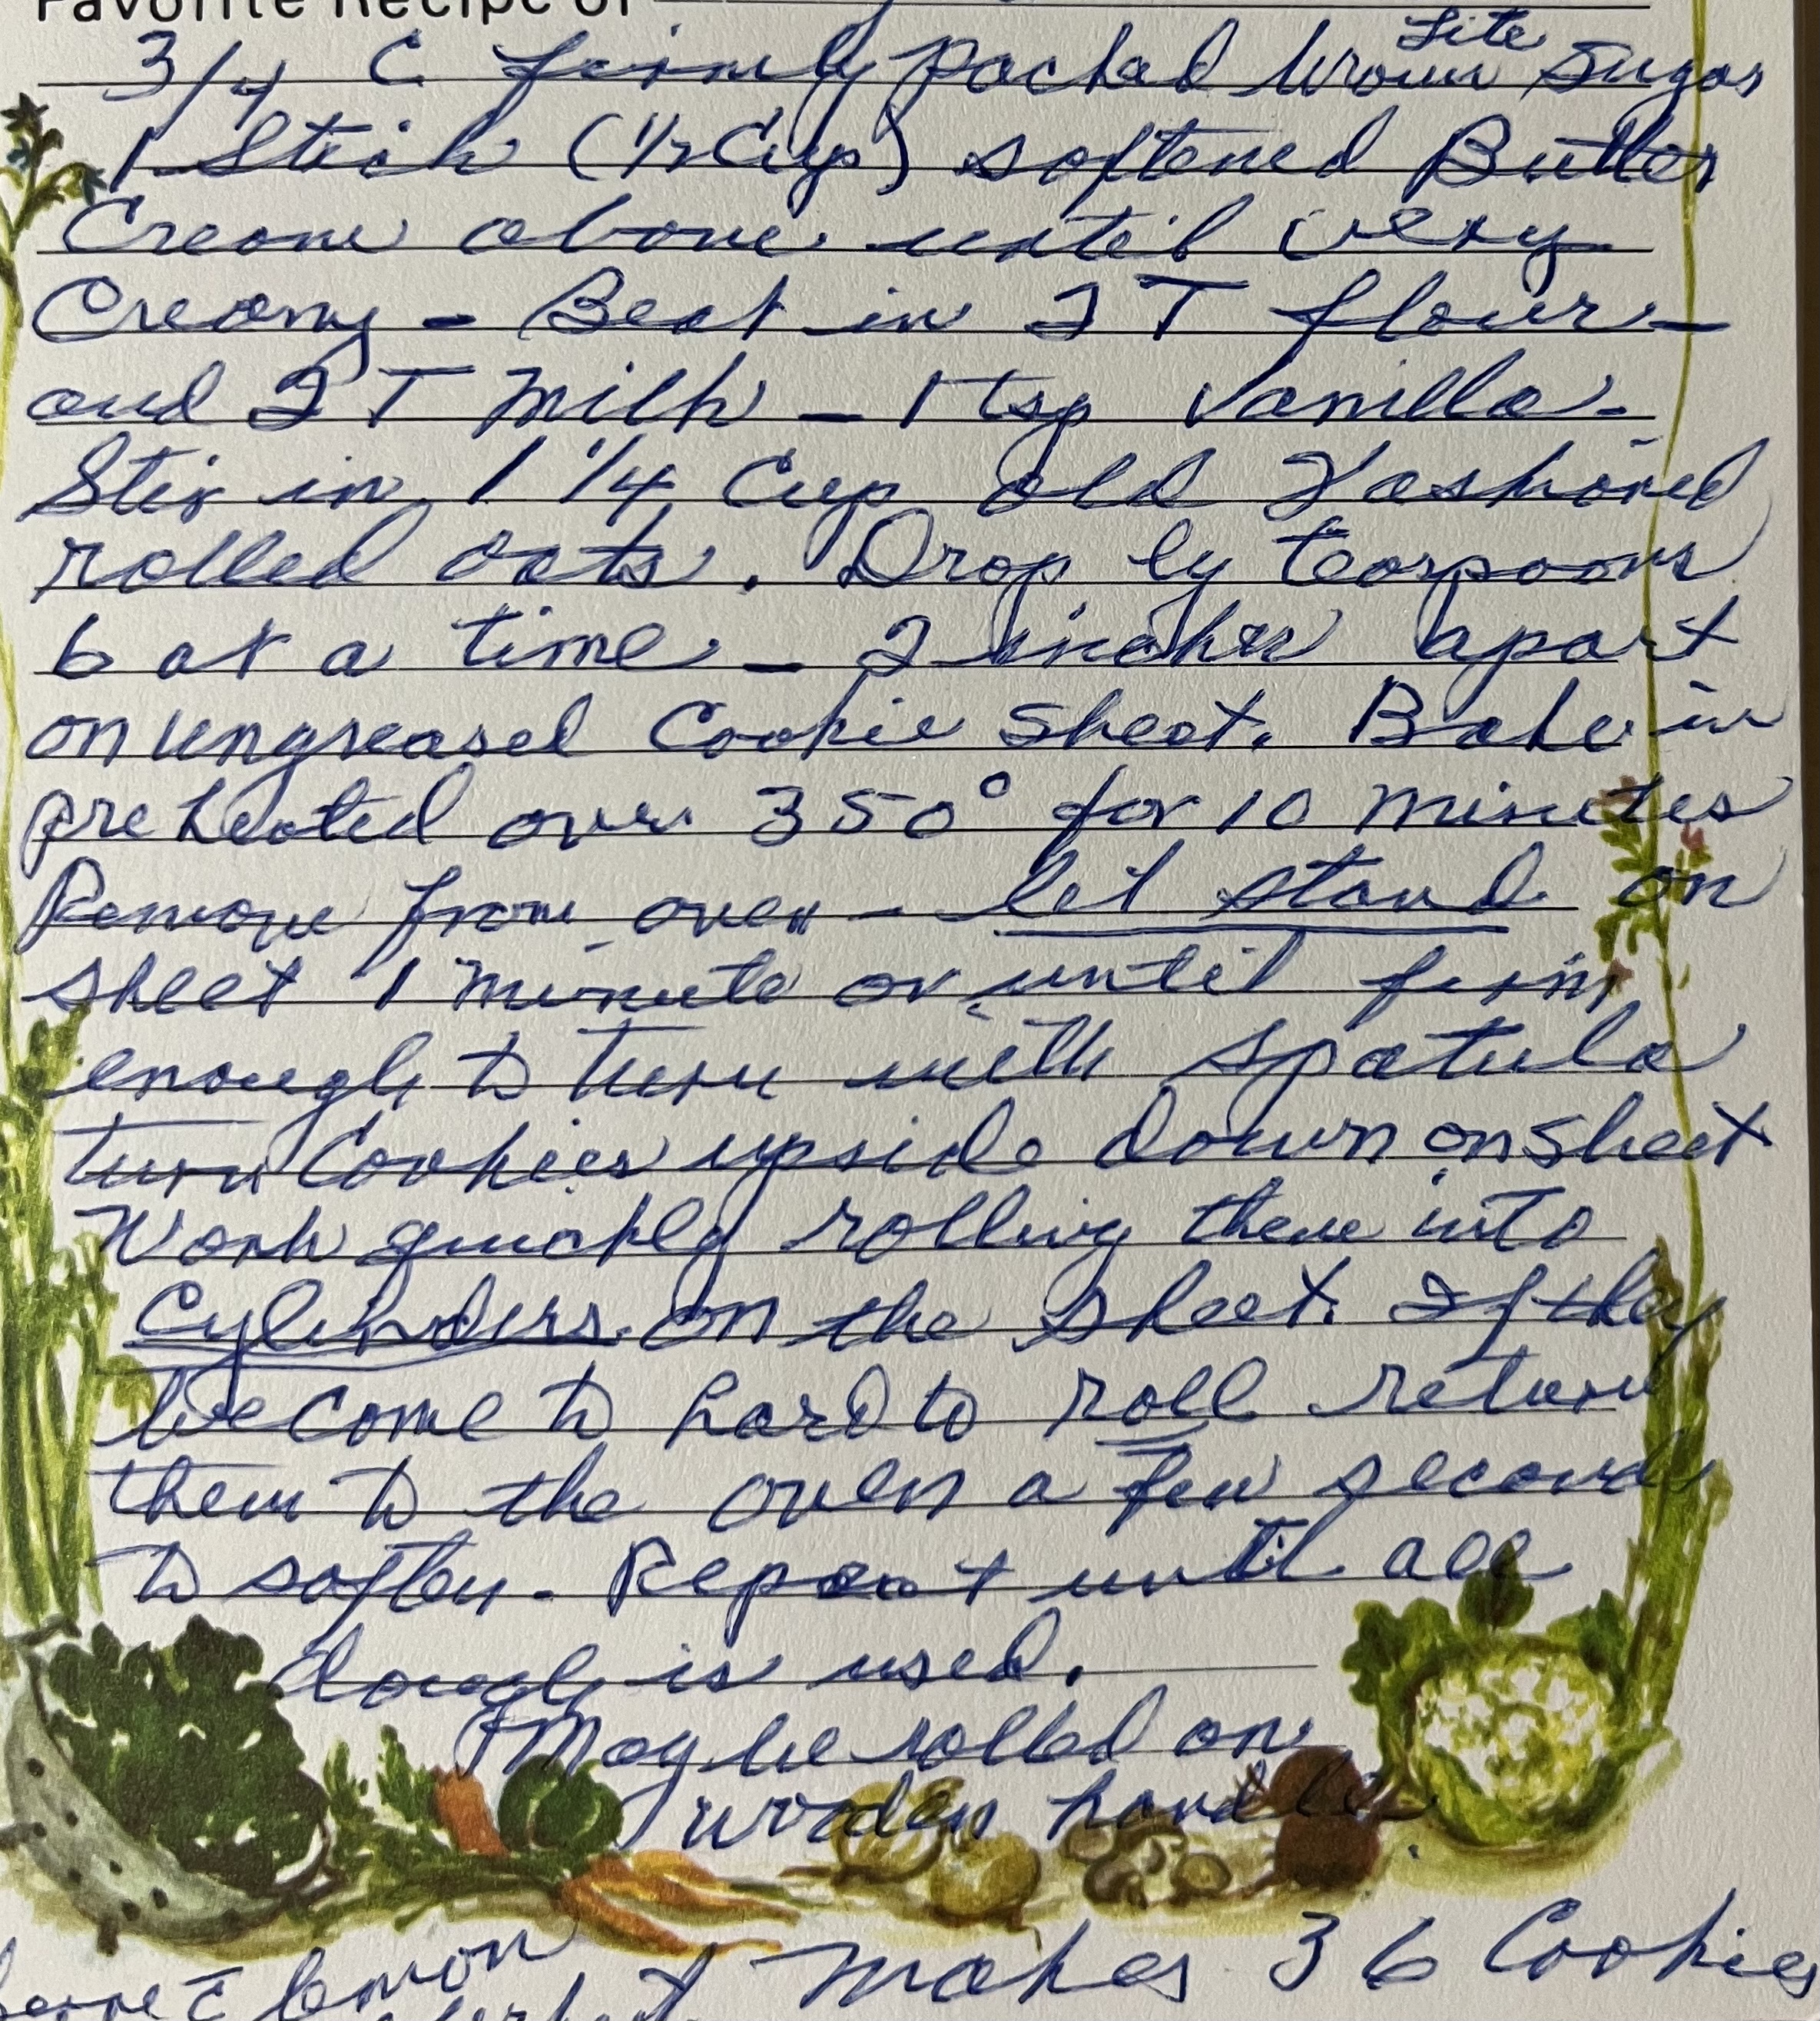 Favorite Recipe of
Lite
3/4 C firmly packed brown Sugar
1 Stick (1/2 Cup) softened Butter
Cream above until very
Creamy - Beat in 2 T flour -
and 2 T Milk - 1 tsp Vanilla -
Stir in 1 1/4 Cup old Fashioned
rolled oats. Drop by teaspoons
6 at a time - 2 inches apart
on ungreased Cookie Sheet. Bake in
preheated oven 350° for 10 minutes
Remove from oven - let stand on
sheet 1 minute or until firm
enough to turn with spatula
turn Cookies upside down on sheet
Work quickly rolling them into
Cylinders on the sheet. If they
become to hard to roll return
them to the oven a few seconds
to soften. Repeat until all
dough is used.
May be rolled on
wooden handle.
makes 36 Cookies
lemon